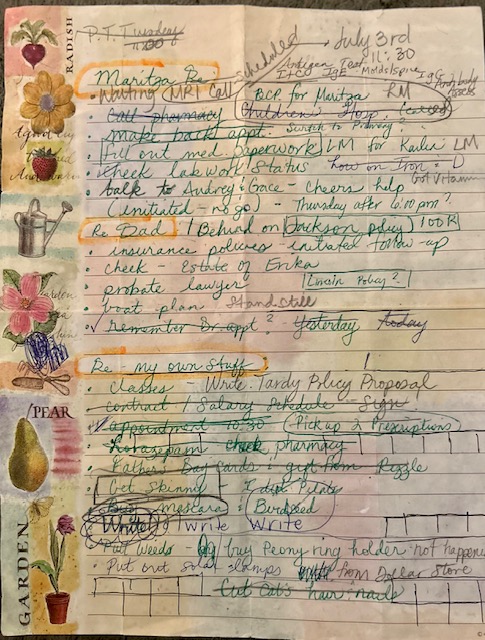 RADISH
P.T. Tuesday
11:30
Scheduled July 3rd
11:30
Antigen Test
Maritza Re-
Waiting MRI Call
BCP for Maritza RM
Call pharmacy
Children's Hosp. (called)
make back appt.
fill out med. paperwork LM for Kailu LM
check lab work status low on Iron + D
talk to Audrey + Grace - Cheers help
(initiated - no go) - Thursday after 6:00 pm?
Re Dad / Behind on Jackson policy 100K
insurance policies - initiated follow-up
check - Estate of Erika
probate lawyer Lincoln Policy?
boat plan Stand still
✓ Remember Dr appt? - Yesterday today
Re - my own Stuff
classes - Write Tardy Policy Proposal
contract / Salary Schedule - Sign
appointment 10:30 (Pick up 2 Prescriptions)
PEAR
Lorazepam check pharmacy
Father's Day cards + gift from Rizzle
Get Skinny -
Buy mascara + Birdseed
Write Write Write
Put weeds - buy Peony ring holder not happening
Put out solar lamps from Dollar Store
Cut Cat's hair + nails
GARDEN